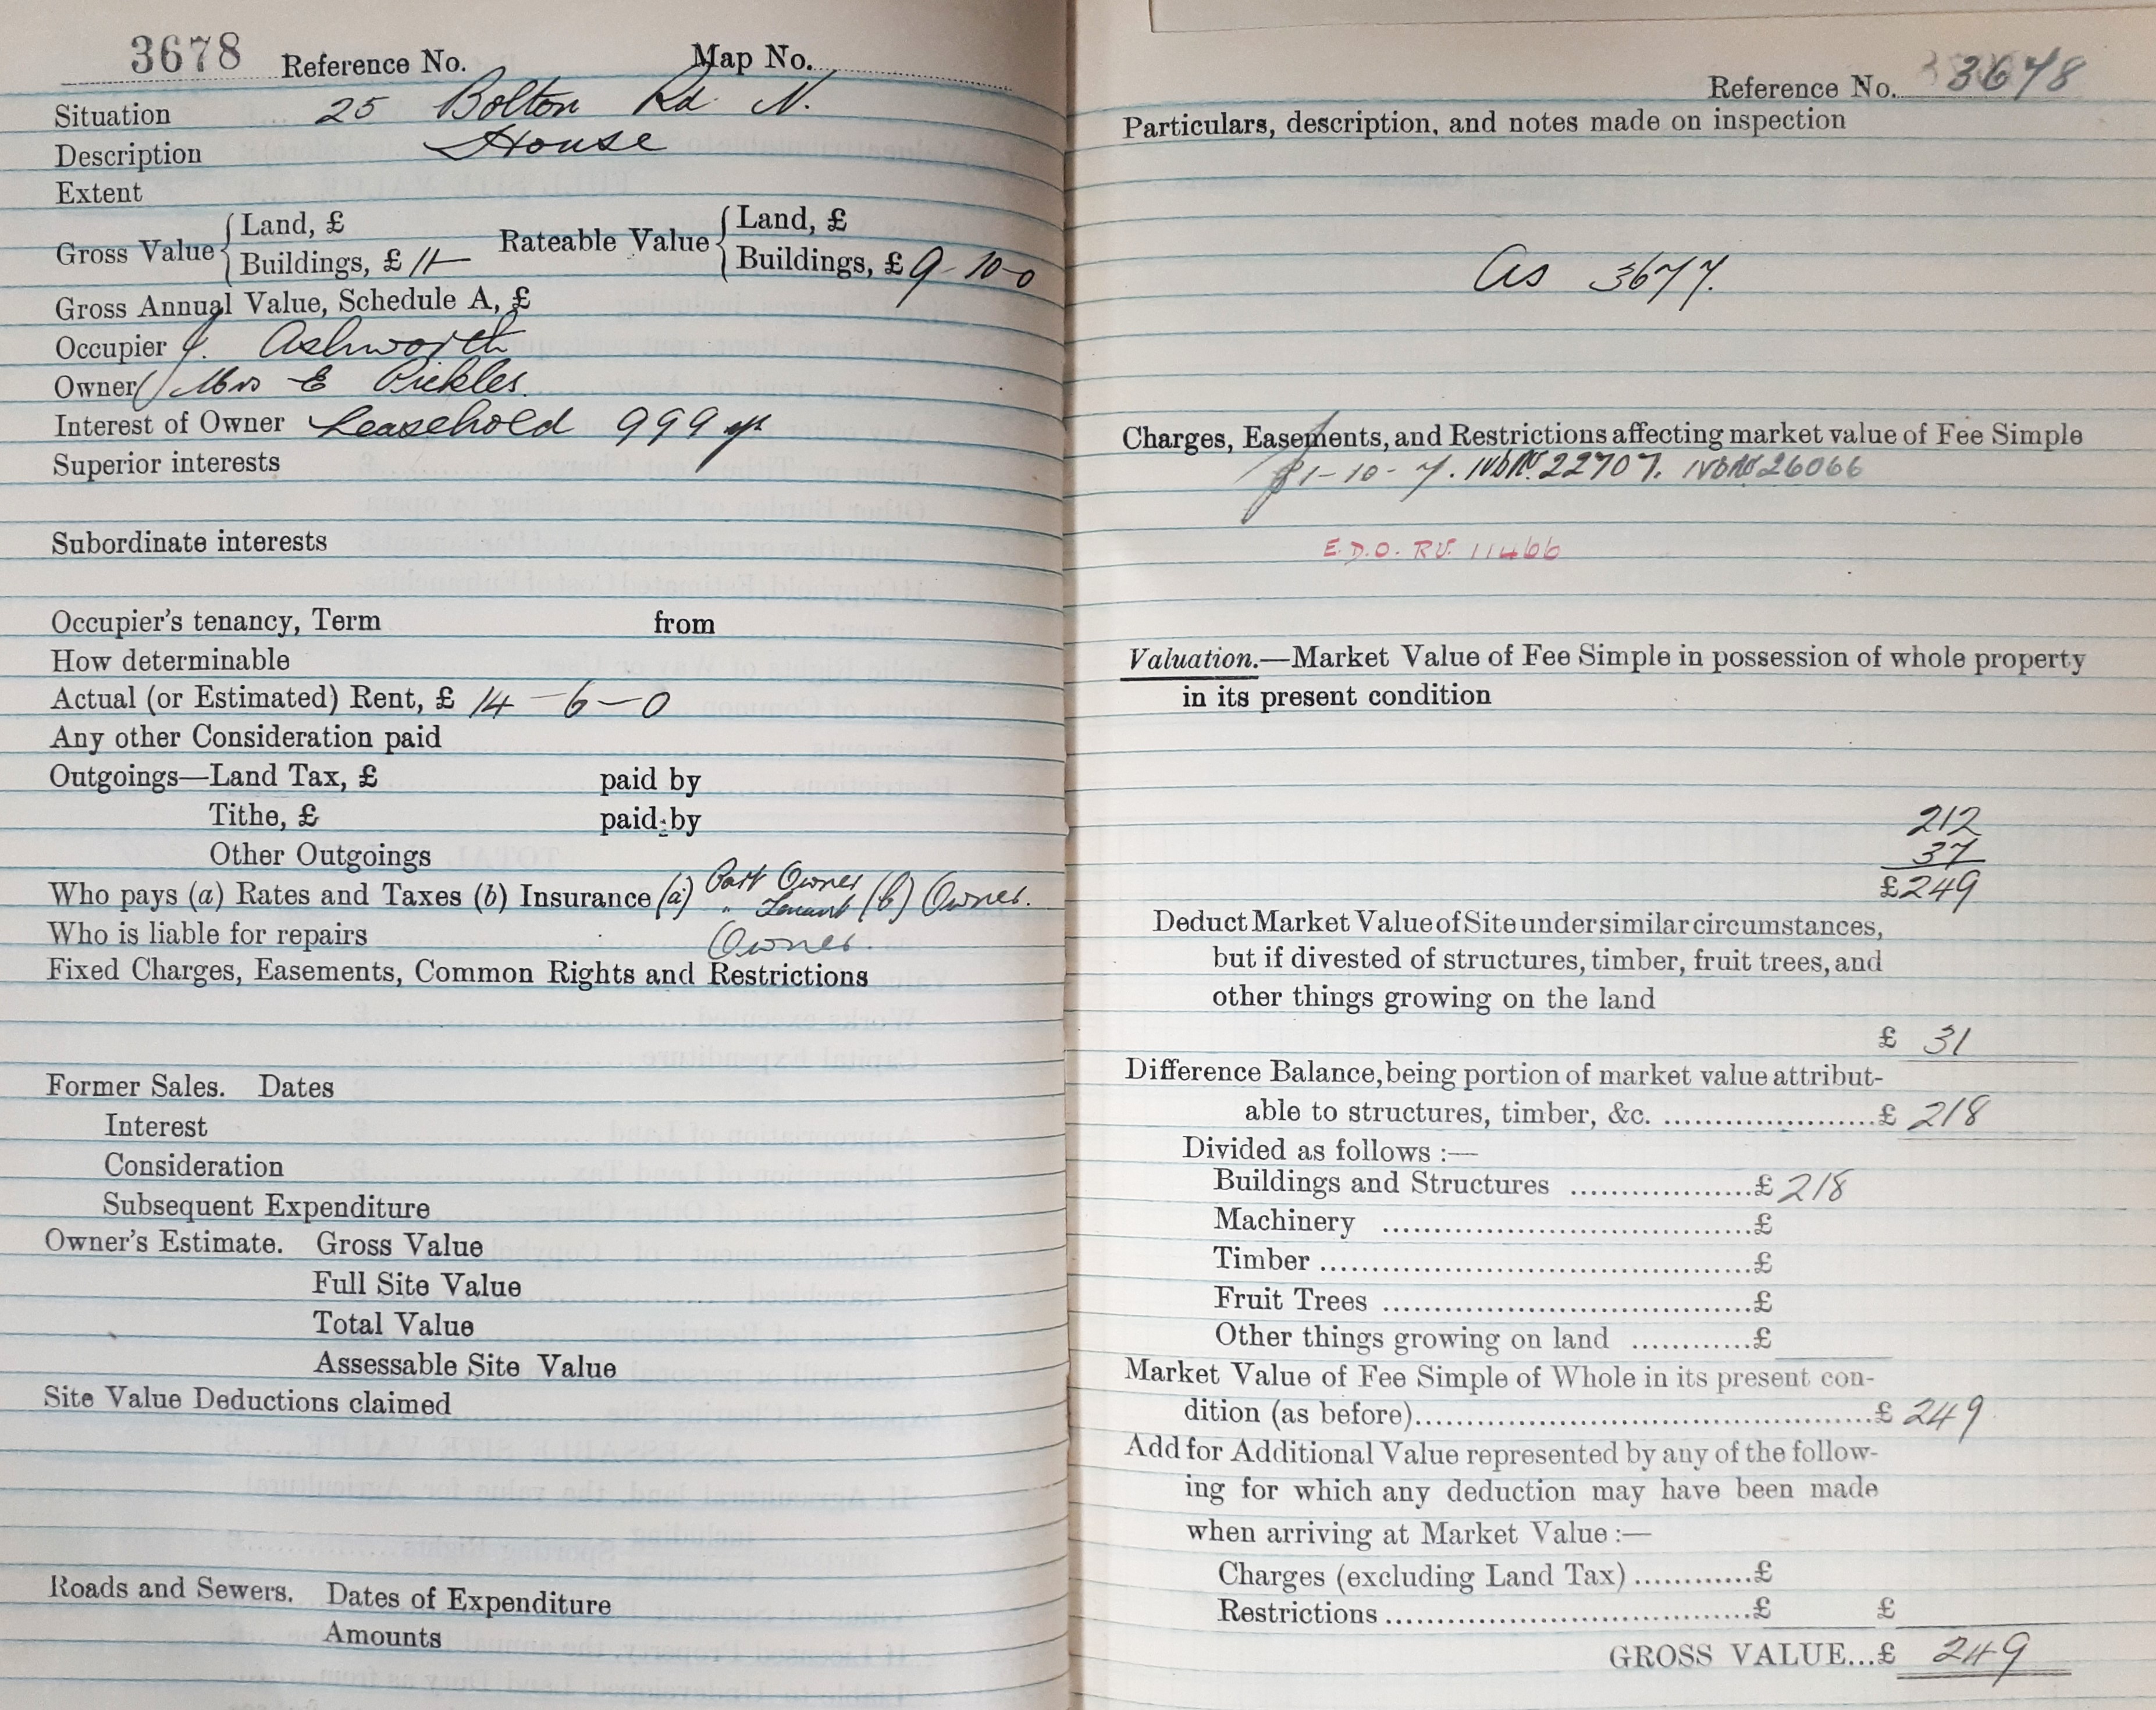 3678 Reference No. Map No.
Situation 25 Bolton Rd. N.
Description House
Extent
Gross Value { Land, £ Rateable Value { Land, £
Buildings, £ 11 Buildings, £ 9-10-0
Gross Annual Value, Schedule A, £
Occupier J. Ashworth
Owner Mrs E Pickles.
Interest of Owner Leasehold 999 yrs
Superior interests
Subordinate interests
Occupier's tenancy, Term from
How determinable
Actual (or Estimated) Rent, £ 14-6-0
Any other Consideration paid
Outgoings—Land Tax, £ paid by
Tithe, £ paid by
Other Outgoings
Who pays (a) Rates and Taxes (b) Insurance (a) Part Owner " Tenant (b) Owner.
Who is liable for repairs Owner.
Fixed Charges, Easements, Common Rights and Restrictions
Former Sales. Dates
Interest
Consideration
Subsequent Expenditure
Owner's Estimate. Gross Value
Full Site Value
Total Value
Assessable Site Value
Site Value Deductions claimed
Roads and Sewers. Dates of Expenditure
Amounts
Reference No. 3678
Particulars, description, and notes made on inspection
As 3677.
Charges, Easements, and Restrictions affecting market value of Fee Simple
1-10-7. 22707. 26066
E.D.O. RV. 11466
Valuation.—Market Value of Fee Simple in possession of whole property
in its present condition
212
37
£249
Deduct Market Value of Site under similar circumstances,
but if divested of structures, timber, fruit trees, and
other things growing on the land
£ 31
Difference Balance, being portion of market value attribut-
able to structures, timber, &c. ....................£ 218
Divided as follows :—
Buildings and Structures ..................£ 218
Machinery ....................................£
Timber ..........................................£
Fruit Trees ....................................£
Other things growing on land ............£
Market Value of Fee Simple of Whole in its present con-
dition (as before)..............................................£ 249
Add for Additional Value represented by any of the follow-
ing for which any deduction may have been made
when arriving at Market Value :—
Charges (excluding Land Tax) ............£
Restrictions ....................................£ £
GROSS VALUE...£ 249